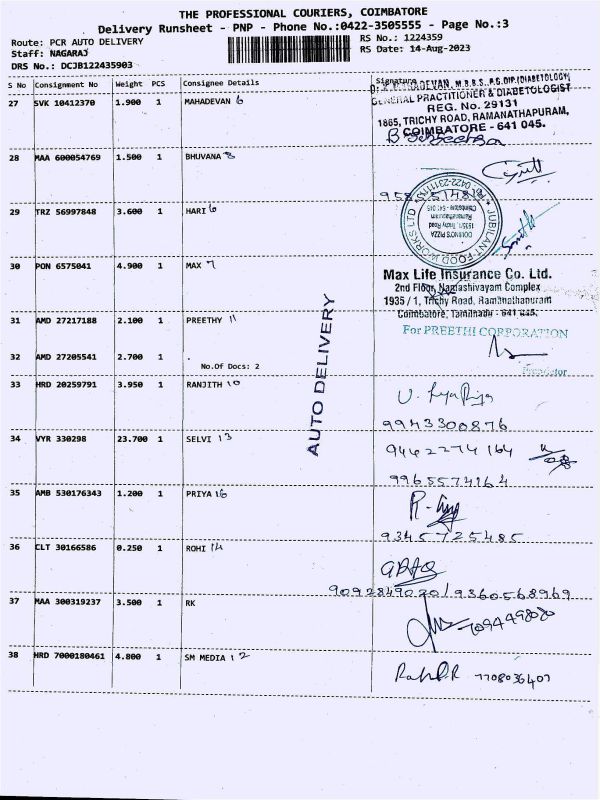 THE PROFESSIONAL COURIERS, COIMBATORE
Delivery Runsheet - PNP - Phone No.:0422-3505555 - Page No.:3
Route: PCR AUTO DELIVERY
Staff: NAGARAJ
DRS No.: DCJB122435903
RS No.: 1224359
RS Date: 14-Aug-2023
S No Consignment No Weight PCS Consignee Details Signature
27 SVK 10412370 1.900 1 MAHADEVAN 6
M.B.B.S., P.G.DIP.(DIABETOLOGY)
GENERAL PRACTITIONER & DIABETOLOGIST
REG. No. 29131
1865, TRICHY ROAD, RAMANATHAPURAM,
COIMBATORE - 641 045.
28 MAA 600054769 1.500 1 BHUVANA 8
29 TRZ 56997848 3.600 1 HARI 6
JUBILANT FOOD WORKS LTD
DOMINO'S PIZZA
1935/1, Trichy Road
Ramanathapuram
Coimbatore - 641 045
30 PON 6575041 4.900 1 MAX 7
Max Life Insurance Co. Ltd.
2nd Floor, Namashivayam Complex
1935 / 1, Trichy Road, Ramanathapuram
Coimbatore, Tamilnadu - 641 045.
31 AMD 27217188 2.100 1 PREETHY 11
For PREETHI CORPORATION
Proprietor
32 AMD 27205541 2.700 1 .
No.Of Docs: 2
AUTO DELIVERY
33 HRD 20259791 3.950 1 RANJITH 10
9943300876
34 VYR 330298 23.700 1 SELVI 13
9442274164
9965574164
35 AMB 530176343 1.200 1 PRIYA 16
9345725485
36 CLT 30166586 0.250 1 ROHI 14
9092849020/9360568969
37 MAA 300319237 3.500 1 RK
38 HRD 7000180461 4.800 1 SM MEDIA 12
7708036407